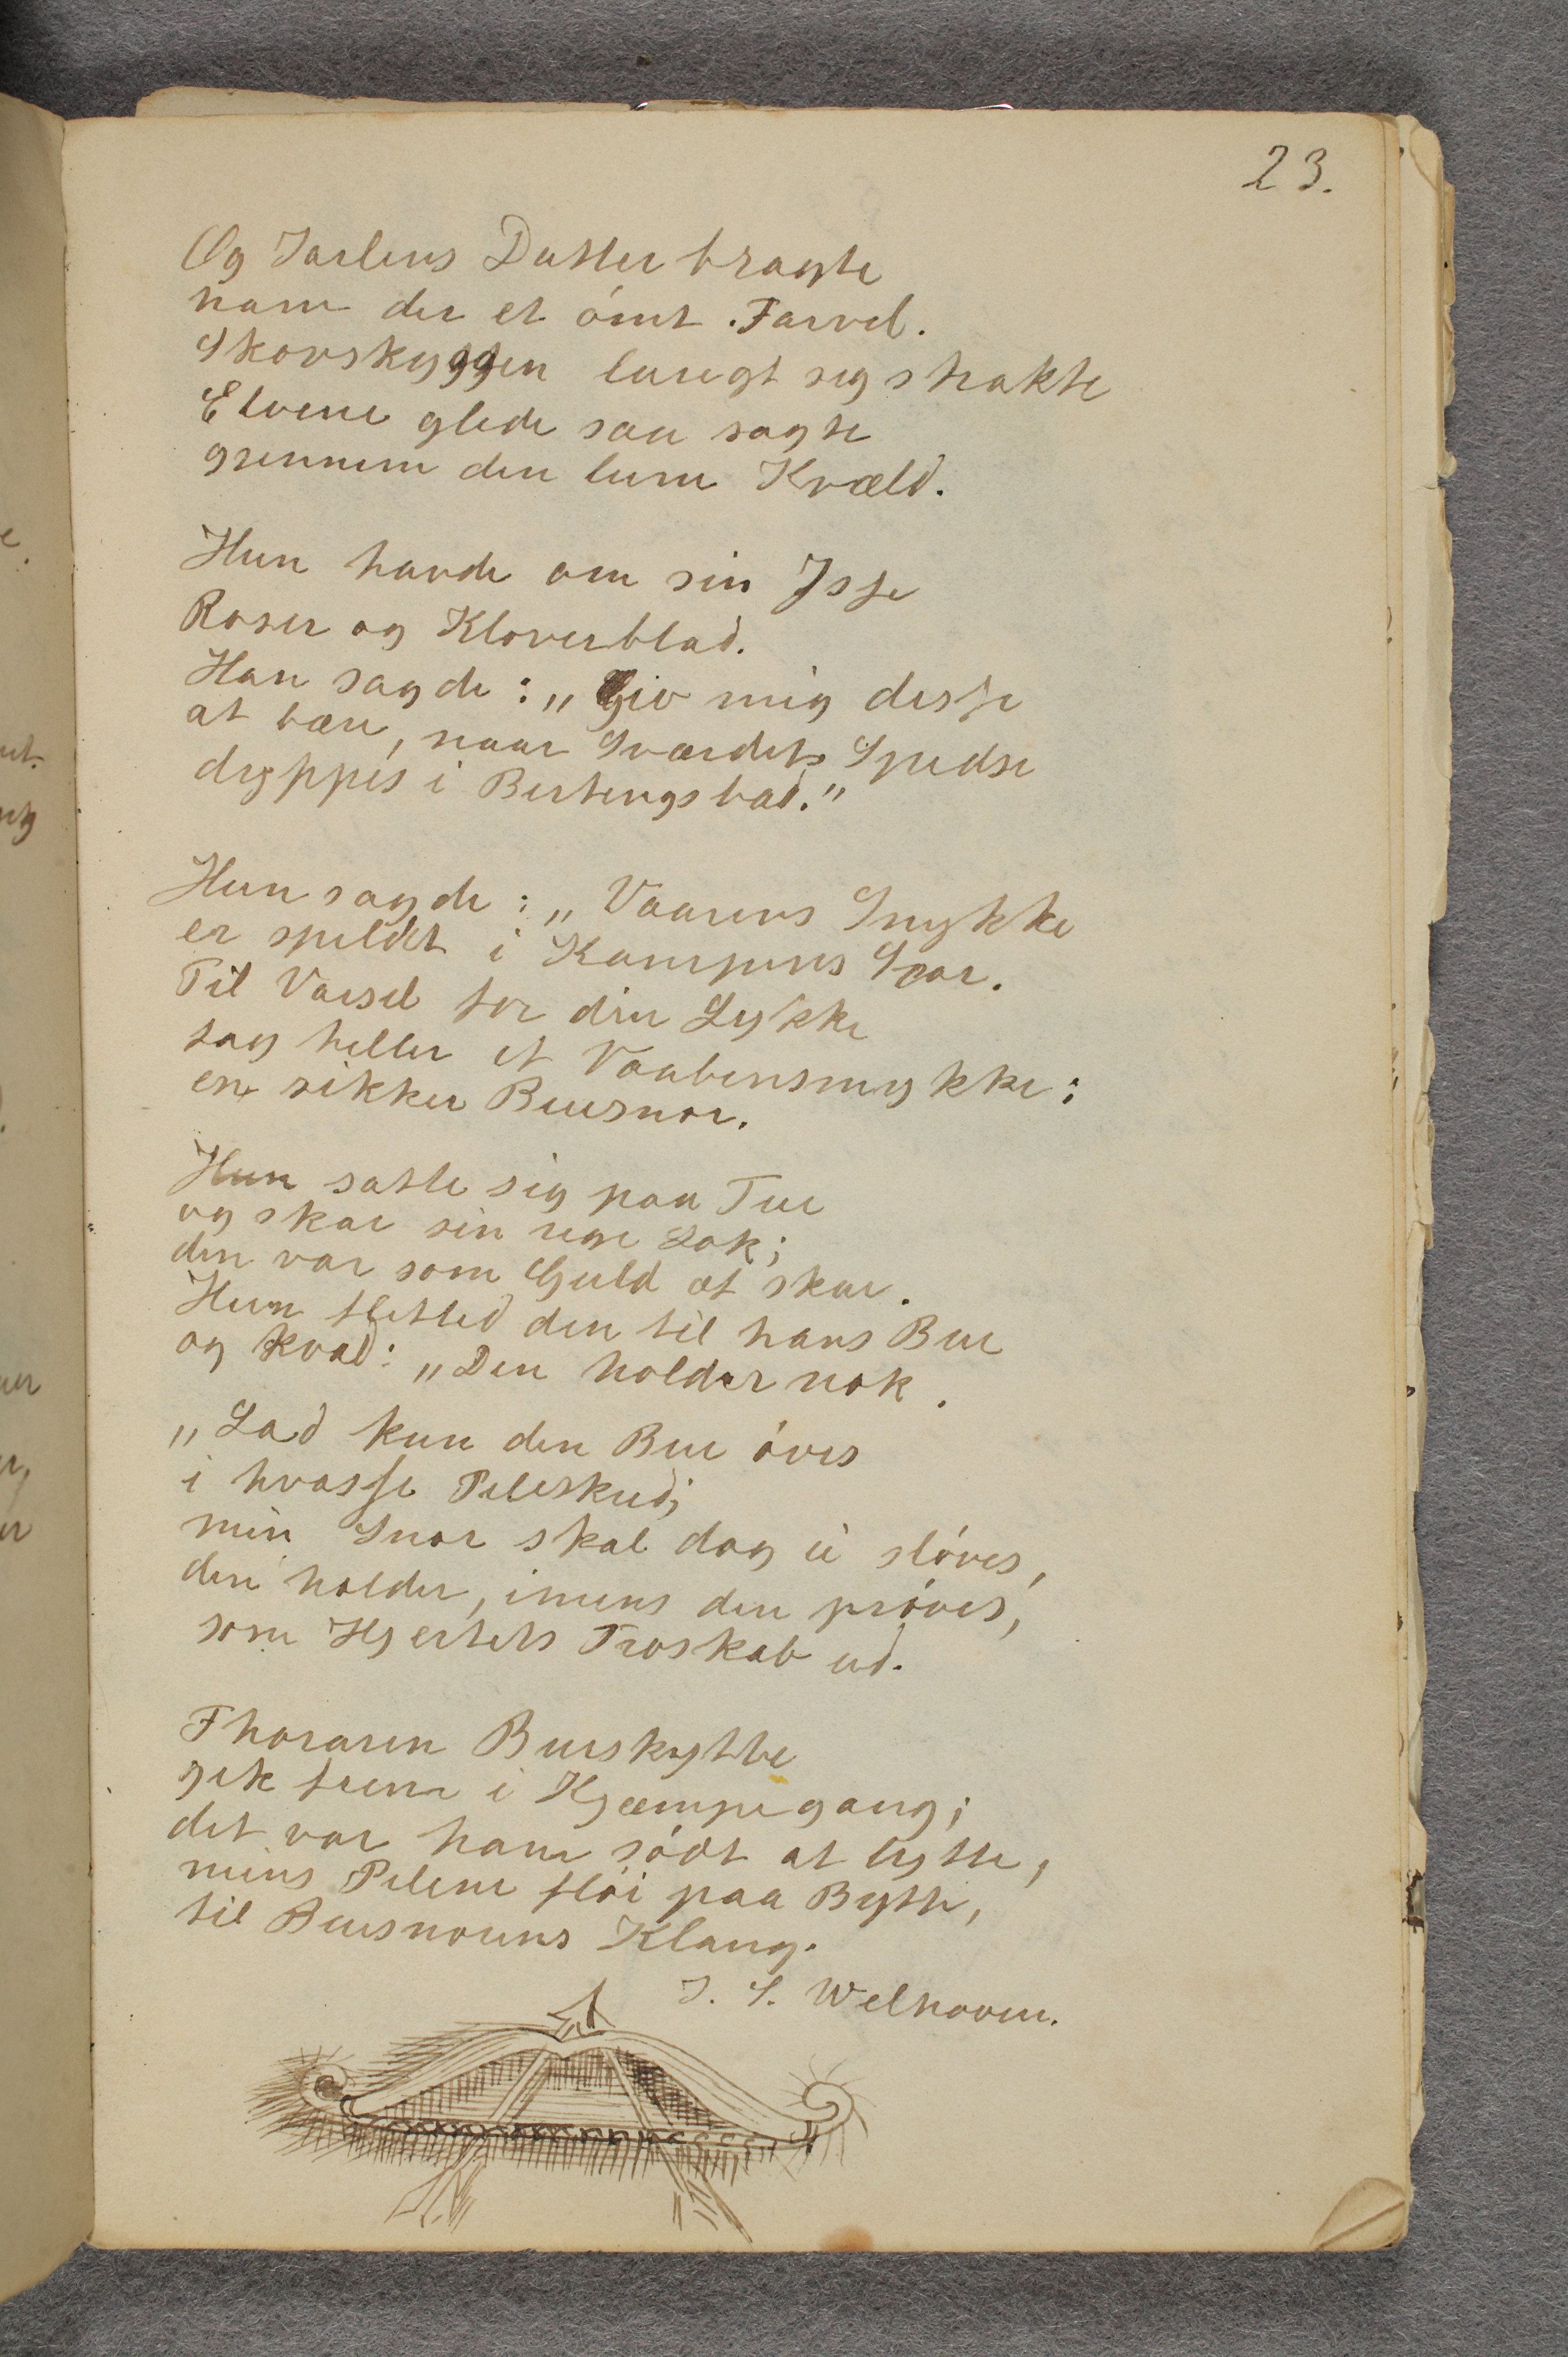 23.
Og Jarlens Datter bragte
ham der et ómt Farvel.
Skovskyggen luregt sig strakte
Elvene glede saa sagte
gjennem den lune Kvæld.
Hun havde om sin Isse
Roser og Kloverblad.
Han sagde: „Giv mig disse
at bære, naar Sværdets Spidse
dyppes i Bersterngsbad."
Hun sagde: „Vaarens Smykke
er spildt i Kampens Spor.
Til Varsel for din Lykke
tag heller et Vaabensmykke:
en sikker Buesnor.
Hun satte sig paa Tue
og skar sin rige Lok;
den var som Guld at skue.
Hun fletted den til hans Bue
og kvad: „Den holder nok.
„Lad kun den Bue óves
i hvasse Pileskud;
min Snor skal dog ei slóves,
den holder, imens den próves,
som Hjertets Troskab ud.
Thoraren Bueskytte
gik frem i Kjæmpegang;
det var ham sódt at lytte,
mens Pilene flói paa Bytte,
til Buesnorens Klang.
J. S. Welhaven.